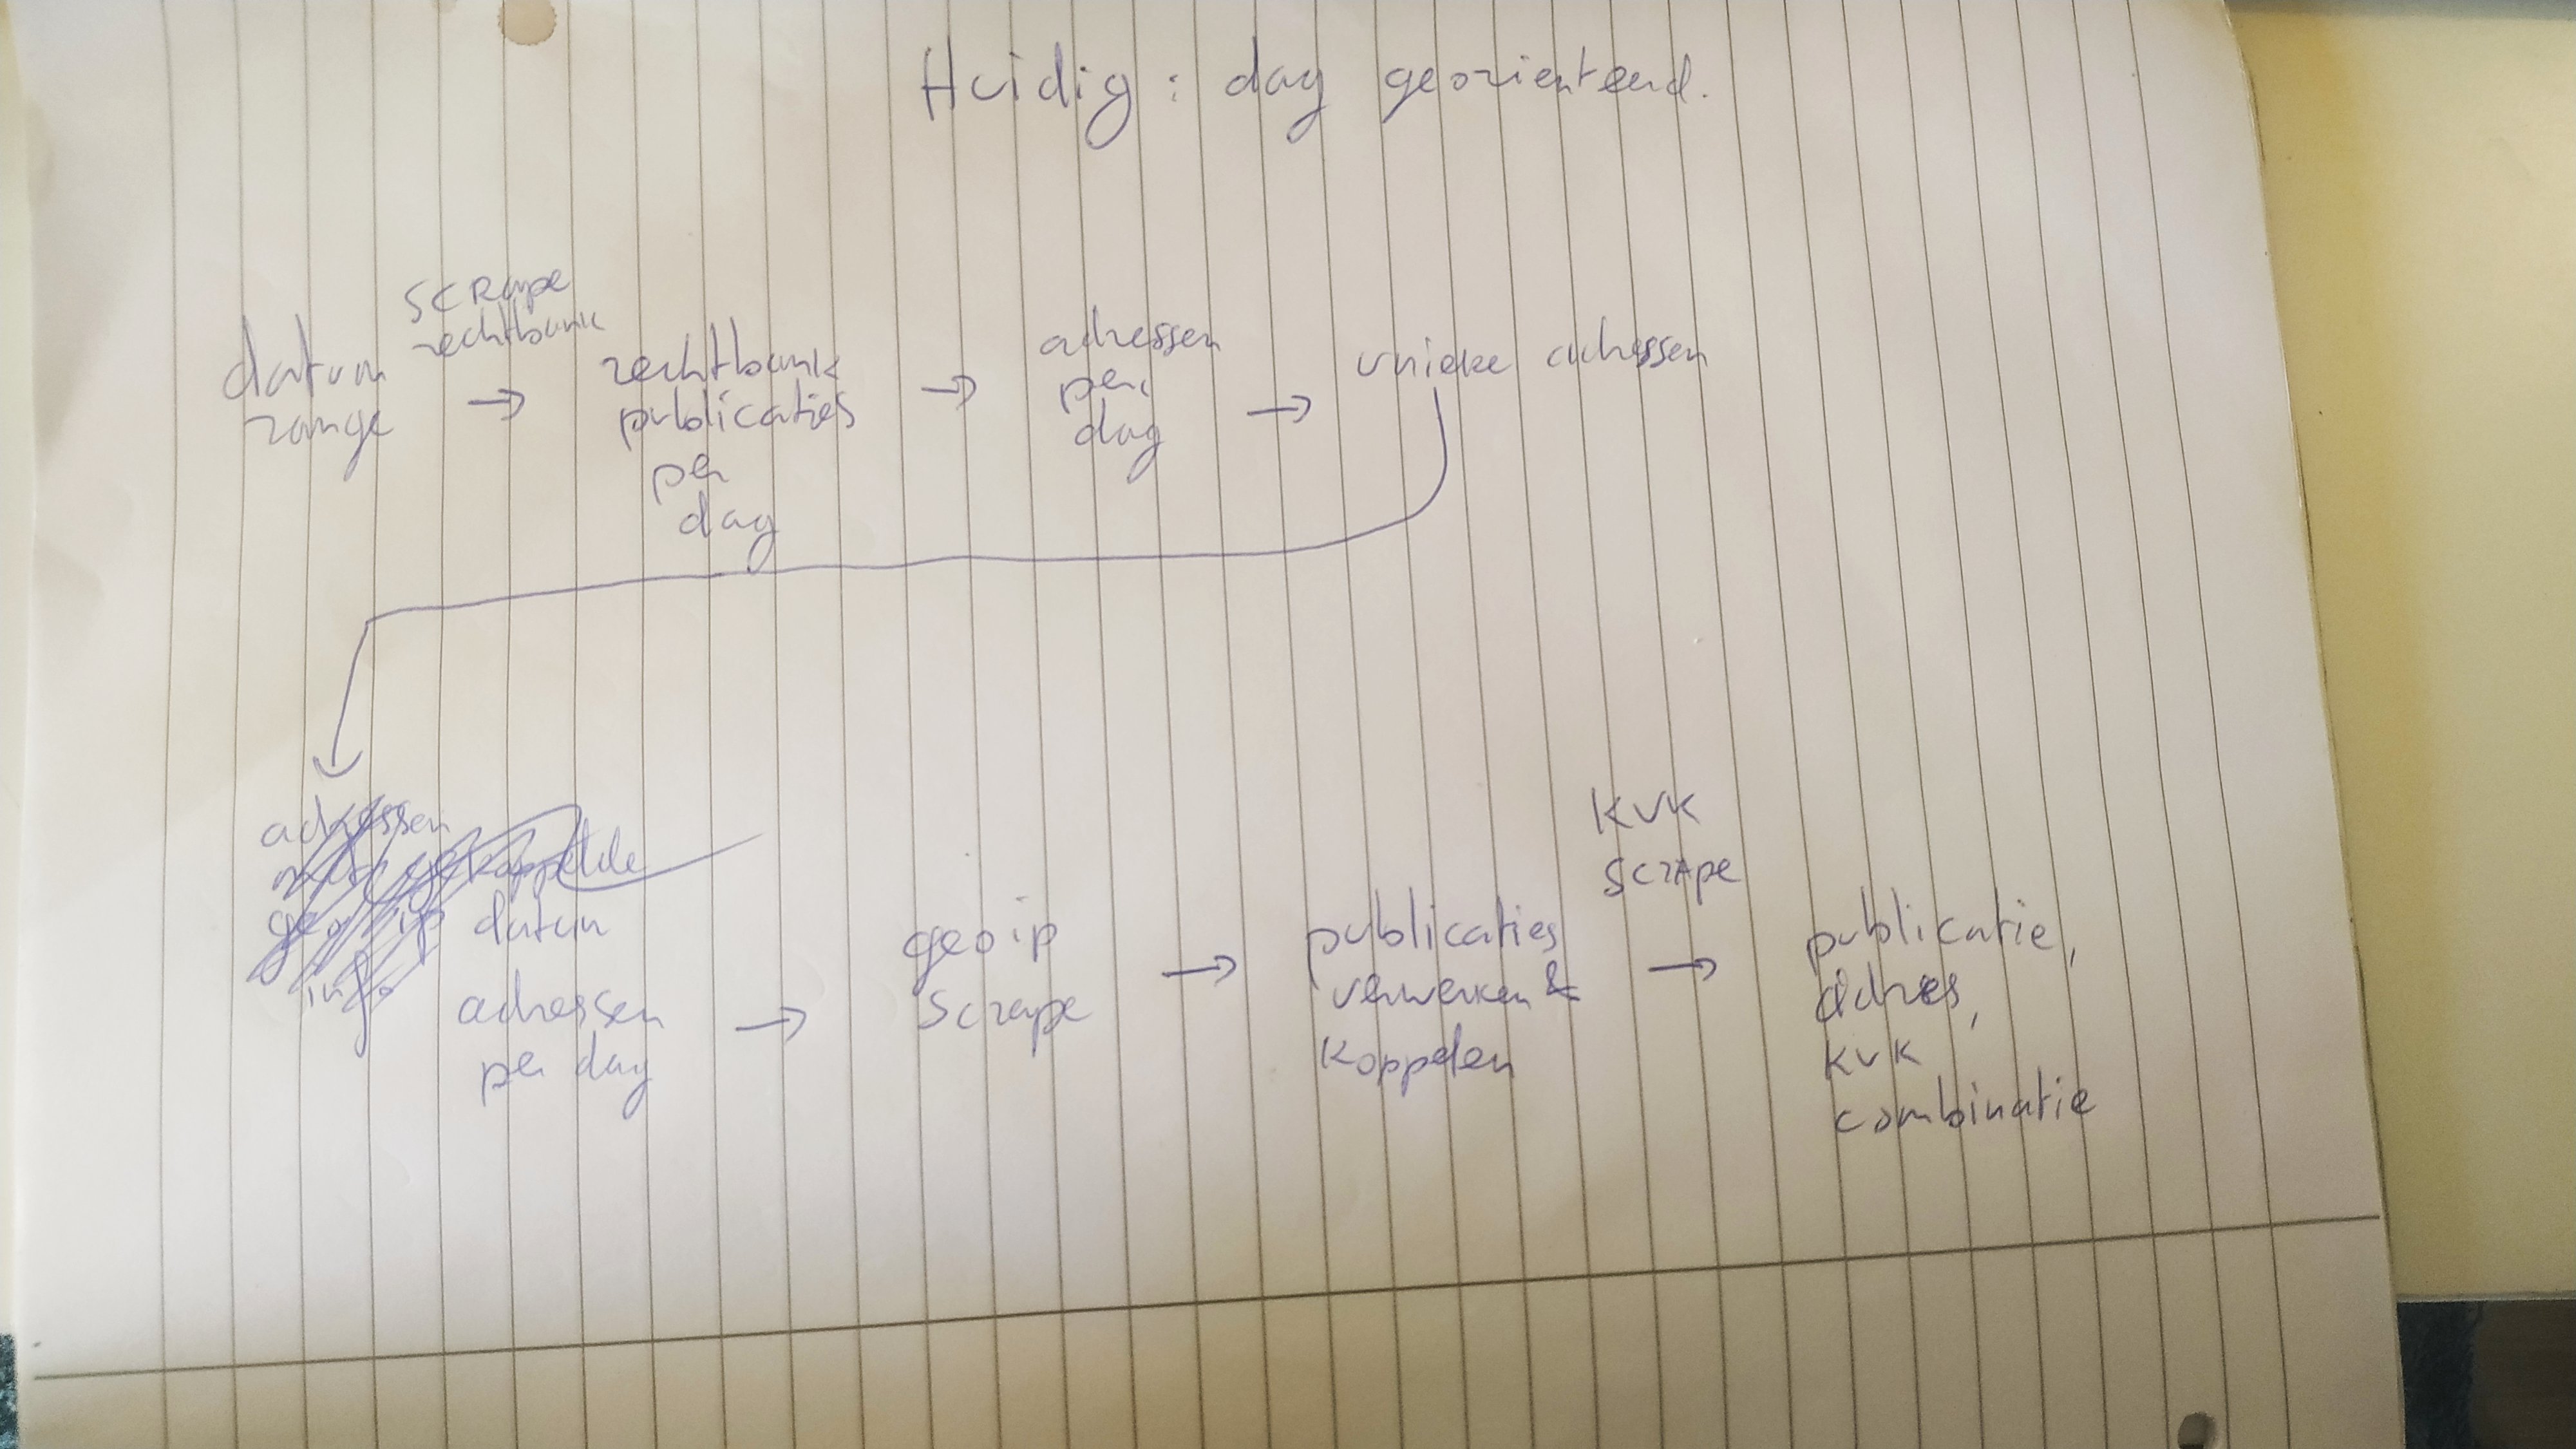 Huidig: dag georienteerd.
scrape
rechtbank
datum
range
→
rechtbank
publicaties
per
dag
→
adressen
per
dag
→
unieke adressen
adressen
datum
adressen
per dag
→
geoip
scrape
→
publicaties
verwerken &
koppelen
KVK
scrape
→
publicatie,
adres,
KVK
combinatie